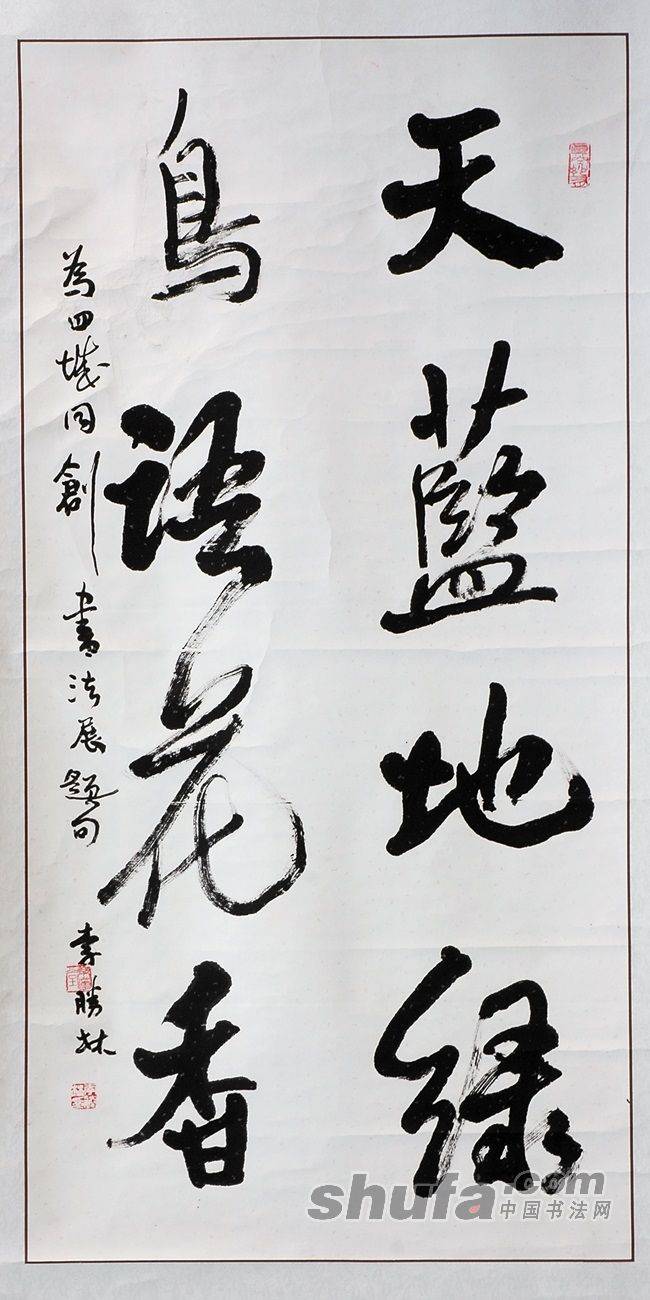 天藍地绿
鳥語花香
為四城同創書法展題句
李勝林
shufa.com
中国书法网